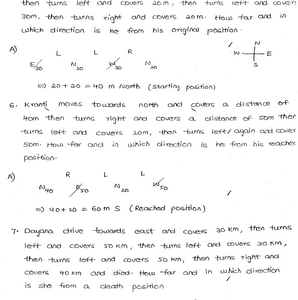 then turns left and covers 20m, then turns left and covers
30m, then turns right and covers 20m. How far and in
which direction is he from his original position.
A) L L R
E30 N20 W30 N20
N
W E
S
=) 20 + 20 = 40 m North (starting position)
6. Kranti moves towards north and covers a distance of
40m then turns right and covers a distance of 50m then
turns left and covers 20m, then turns left/again and cover
50m. How far and in which direction is he from his reached
position.
A) R L L
N40 E50 N20 W50
=) 40+20 = 60 m S (Reached position)
7. Dayana drive towards east and covers 30 km, then turns
left and covers 50 km, then turns left and covers 30 km,
then turns left and covers 50 km, then turns right and
covers 40 km and died. How far and in which direction
is she from a death position.